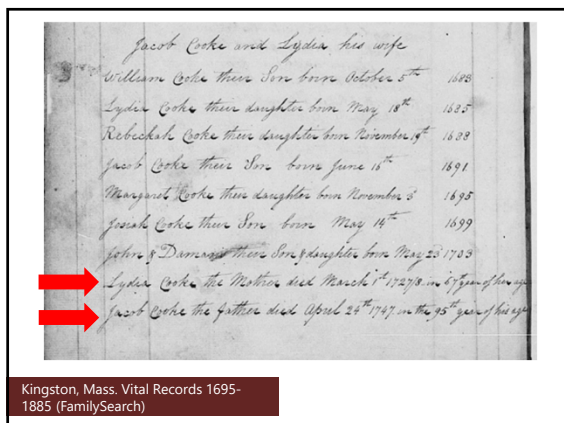 Jacob Cooke and Lydia his wife
William Cooke their Son born October 5th 1683
Lydia Cooke their daughter born May 18th 1685
Rebeckah Cooke their daughter born November 19th 1688
Jacob Cooke their Son born June 16th 1691
Margaret Cooke their daughter born November 3 1695
Josiah Cooke their Son born May 14th 1699
John & Damaris their Son & daughter born May 23 1703
Lydia Cooke the Mother died March 1st 1727/8 in 67th year of her age
Jacob Cooke the father died April 24th 1747 in the 95th year of his age
Kingston, Mass. Vital Records 1695-
1885 (FamilySearch)